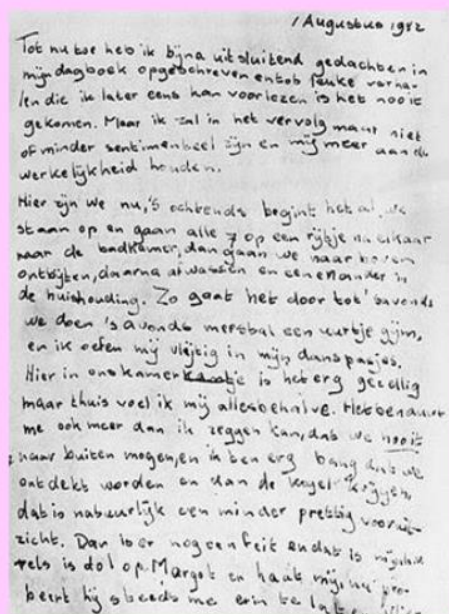 1 Augustus 1942
Tot nu toe heb ik bijna uitsluitend gedachten in
mijn dagboek opgeschreven en tot leuke verha-
len die ik later eens kan voorlezen is het nooit
gekomen. Maar ik zal in het vervolg maar niet
of minder sentimenteel zijn en mij meer aan de
werkelijkheid houden.
Hier zijn we nu, 's ochtends begint het al, we
staan op en gaan alle 7 op een rijtje na elkaar
naar de badkamer, dan gaan we naar boven
ontbijten, daarna afwassen en een en ander in
de huishouding. Zo gaat het door tot 's avonds
we doen 's avonds meestal een uurtje gijm,
en ik oefen mij vlijtig in mijn danspasjes.
Hier in ons kamer is het erg gezellig
maar thuis voel ik mij allesbehalve. Het benauwt
me ook meer dan ik zeggen kan, dat we nooit
naar buiten mogen, en ik ben erg bang dat we
ontdekt worden en dan de kogel krijgen,
dat is natuurlijk een minder prettig vooruit-
zicht. Dan is er nog een feit en dat is
is dol op Margot en haat mij, nu pro-
beert hij steeds me erin te